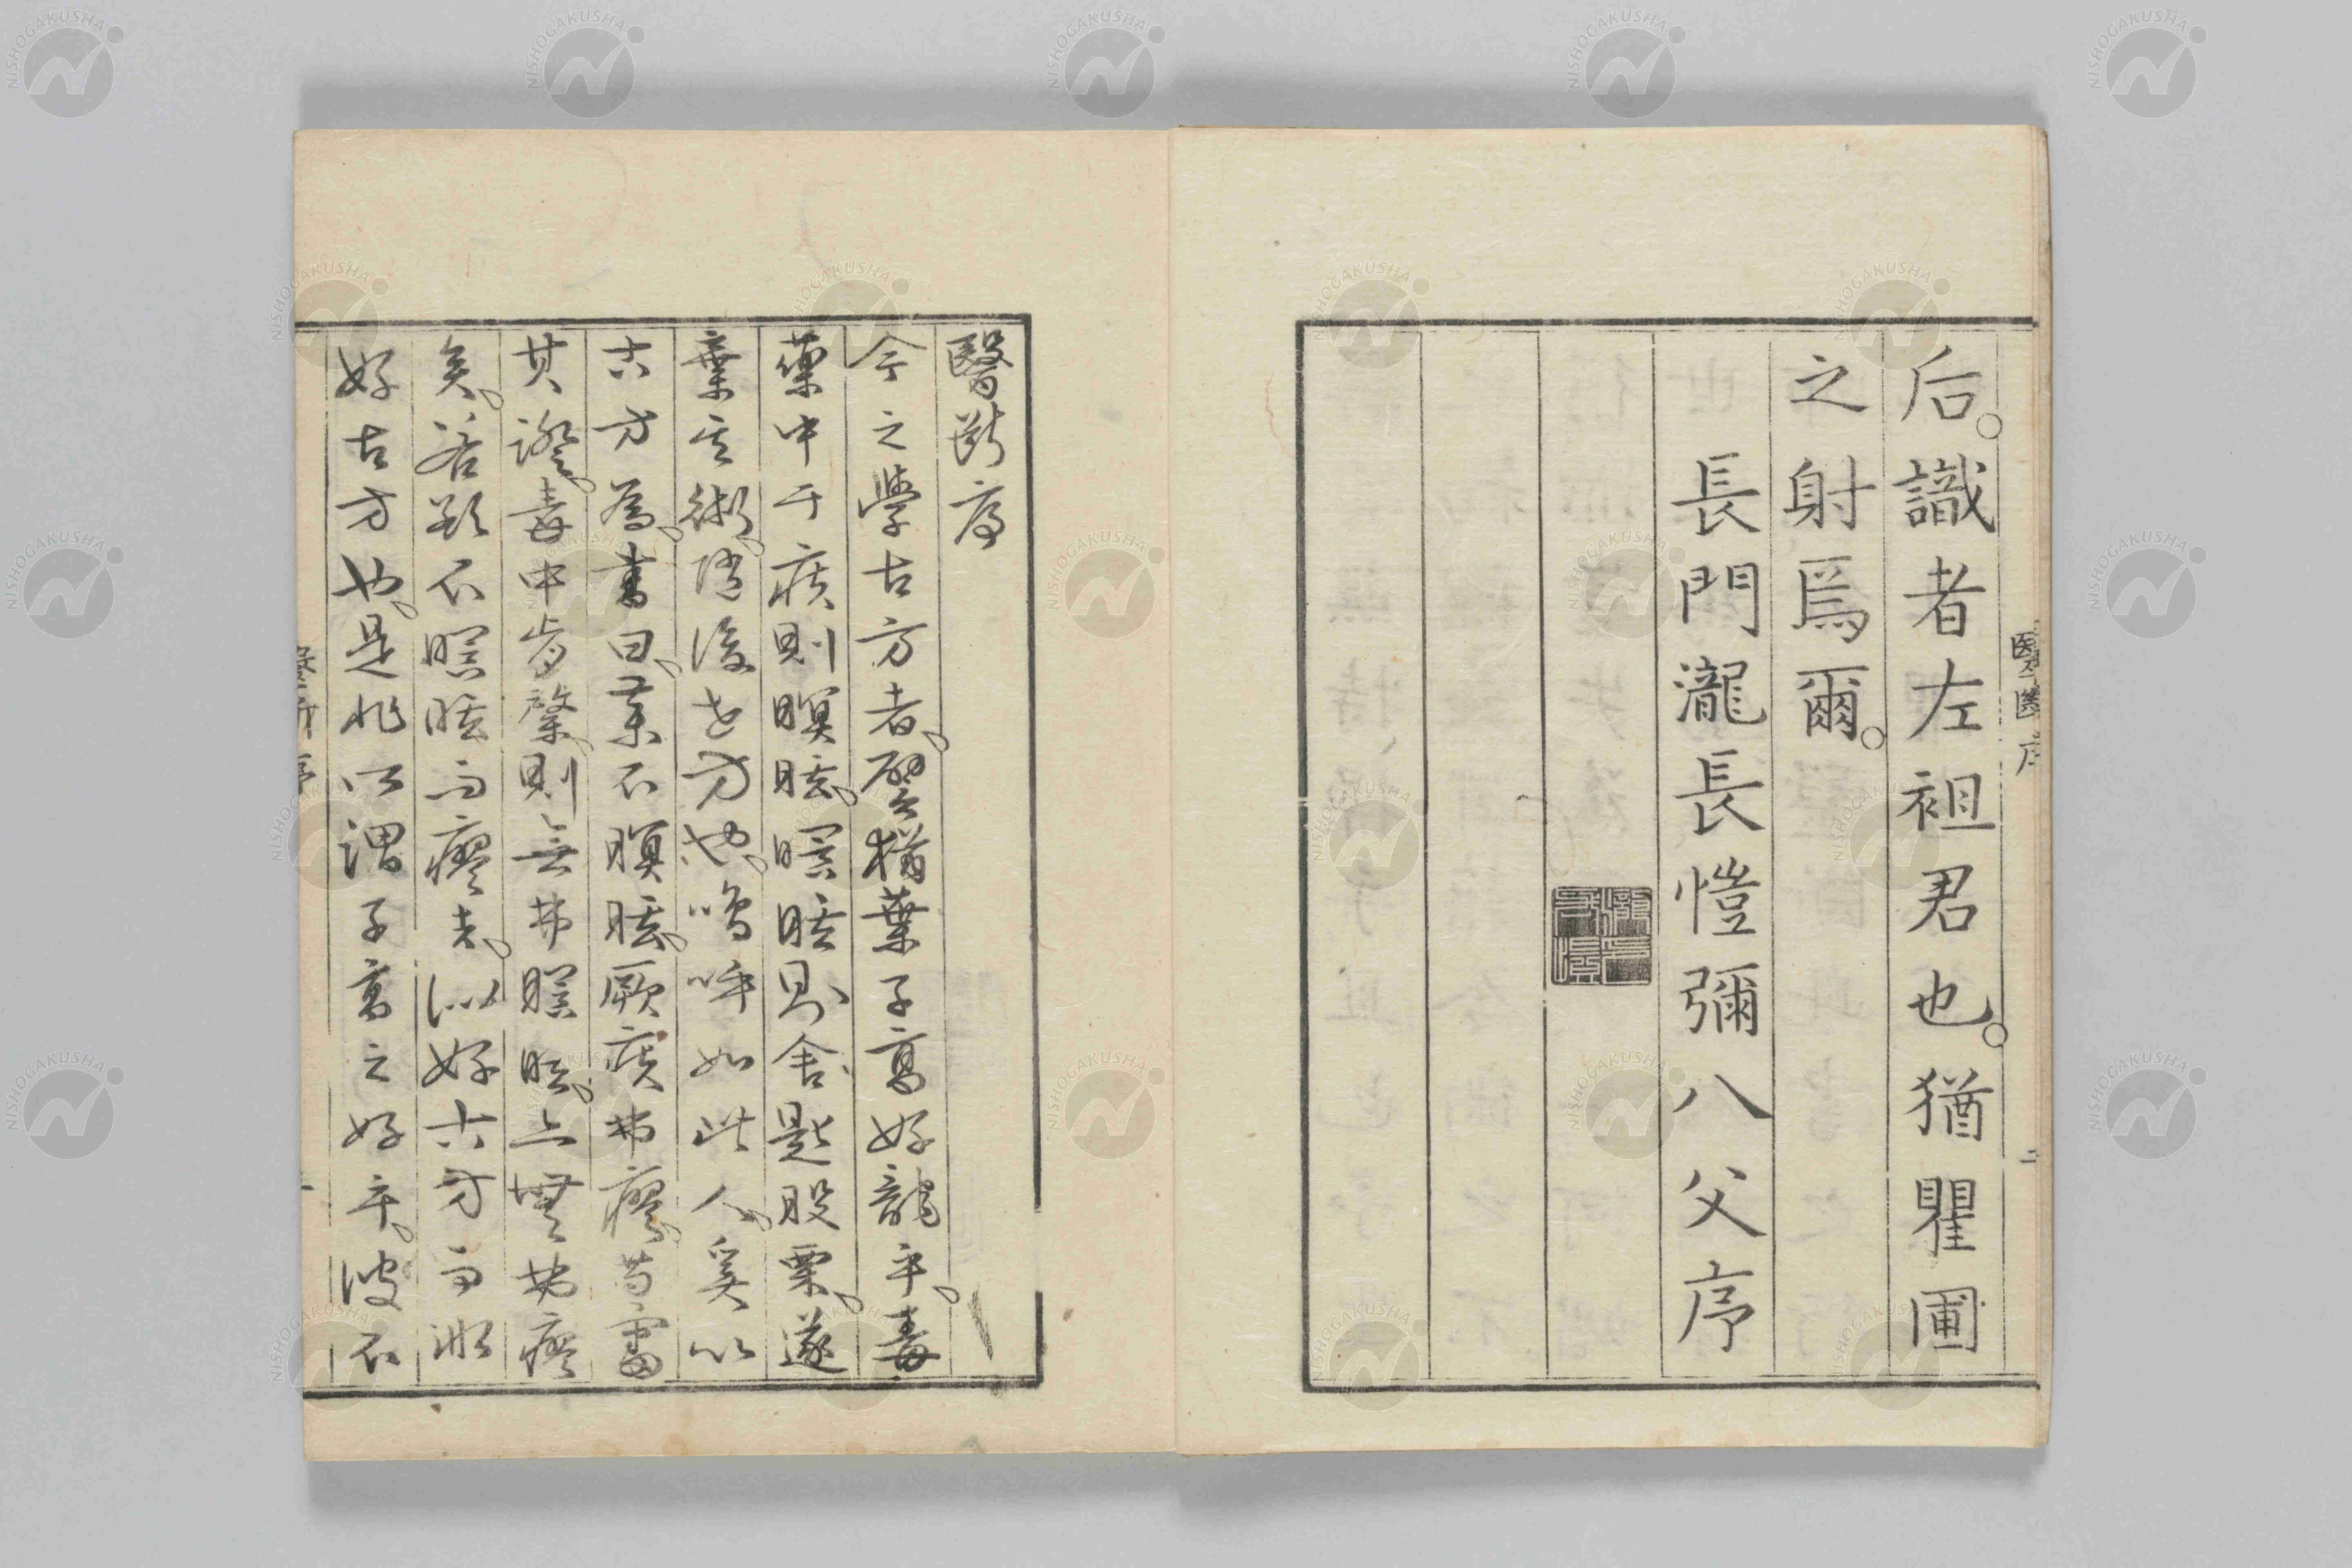 醫斷序
二
后。識者左袒君也。猶瞿圃
之射爲爾。
長門瀧長愷彌八父序
醫斷序
今之學古方者。譬猶葉子高好龍乎。毒
藥中于疾則瞑眩。瞑眩則舍匙股栗。遂
棄其術。陷後世方也。嗚呼如此人。奚以
古方為。書曰。藥不瞑眩。厥疾弗瘳。苟審
其證。毒中肯綮。則無弗瞑眩。亦無弗瘳
矣。若欲不瞑眩而瘳者。似好古方而非
好古方也。是非所謂子高之好乎。彼不
NISHOGAKUSHA